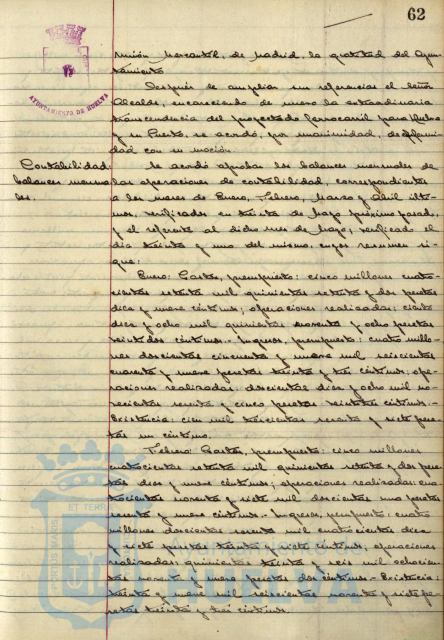 62
AYUNTAMIENTO DE HUELVA
Unión Mercantil, de Madrid, la gratitud del Ayun-
tamiento
Después de ampliar sus referencias el Señor
Alcalde, encareciendo de nuevo la extraordinaria
trascendencia del proyectado ferrocarril para Huelva
y su Puerto, se acordó, por unanimidad, de confor-
midad con su moción.
Contabilidad:
balances mensua-
les.
Se acordó aprobar los balances mensuales de
las operaciones de contabilidad, correspondientes
a los meses de Enero, Febrero, Marzo y Abril últi-
mos, verificados en treinta de Mayo próximo pasado,
y el referente al dicho mes de Mayo, verificado el
día treinta y uno del mismo, cuyo resumen si-
gue:
Enero: Gastos, presupuesto: cinco millones cuatro-
cientas setenta mil quinientas setenta y dos pesetas
diez y nueve céntimos; operaciones realizadas: ciento
diez y ocho mil quinientas noventa y ocho pesetas
veintidos céntimos.- Ingresos, presupuesto: cuatro millo-
nes doscientas cincuenta y nueve mil seiscientas
cuarenta y nueve pesetas treinta y tres céntimos; ope-
raciones realizadas: doscientas diez y ocho mil no-
vecientas sesenta y cinco pesetas veintitres céntimos.-
Existencia: cien mil trescientas sesenta y siete pese-
tas un céntimo.
Febrero: Gastos, presupuesto: cinco millones
cuatrocientas setenta mil quinientas setenta y dos pese-
tas diez y nueve céntimos; operaciones realizadas: cua-
trocientas noventa y siete mil doscientas una pesetas
sesenta y nueve céntimos.- Ingresos, presupuesto: cuatro
millones doscientas sesenta mil cuatrocientas diez
y siete pesetas treinta y siete céntimos; operaciones
realizadas: quinientas treinta y seis mil ochocien-
tas noventa y nueve pesetas dos céntimos.- Existencia:
treinta y nueve mil seiscientas noventa y siete pe-
setas treinta y tres céntimos.